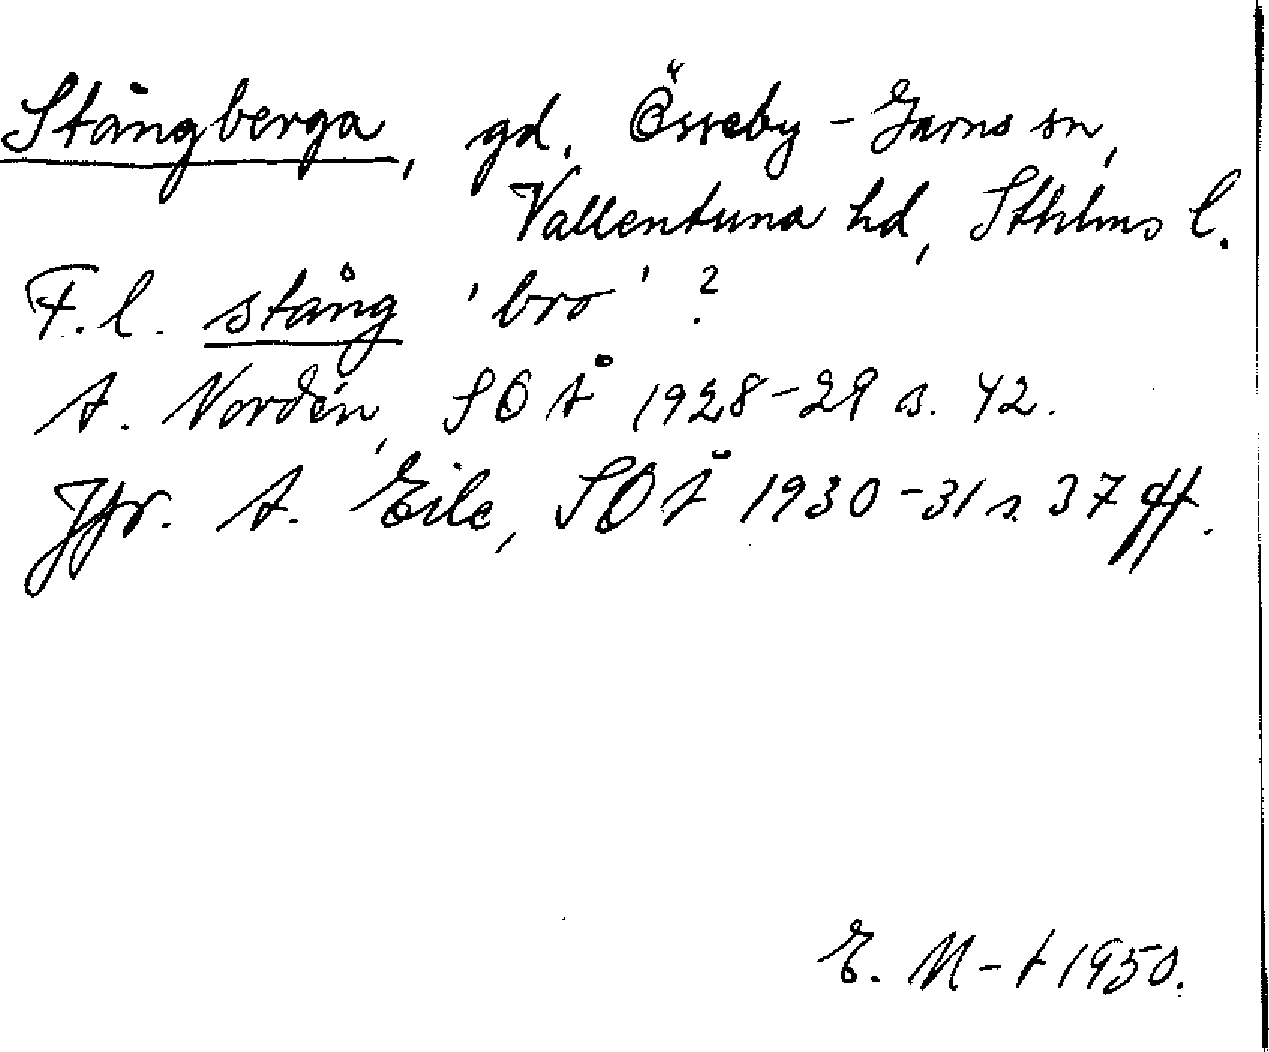 Stångberga, gd, Össeby-Garns sn,
Vallentuna hd, Sthlms l.
F.l. stång 'bro'?
A. Nordén, SOÅ 1928-29 s. 42.
Jfr. A. Eile, SOÅ 1930-31 s. 37 ff.
E. N-t 1950.